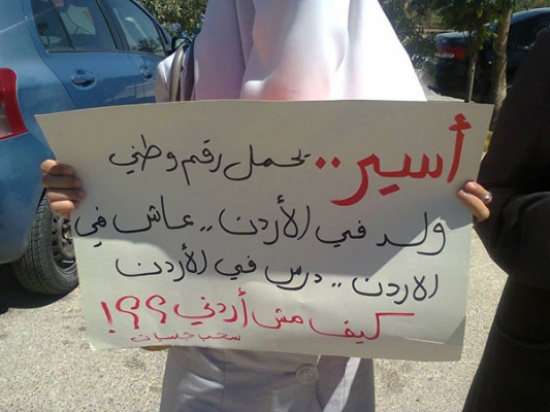 أسير.. يحمل رقم وطني
ولد في الأردن.. عاش في
الاردن.. درس في الأردن
كيف مش أردني؟؟!
سحب جنسيات